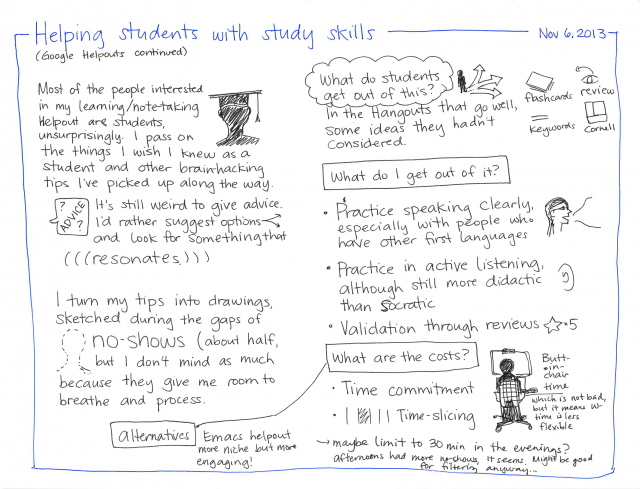 Helping students with study skills
Nov 6, 2013
(Google Helpouts continued)
Most of the people interested
in my learning/note-taking
Helpout are students,
unsurprisingly. I pass on
the things I wish I knew as a
student and other brainhacking
tips I've picked up along the way.
? ADVICE ?
It's still weird to give advice.
I'd rather suggest options
and look for something that
(((resonates.)))
I turn my tips into drawings,
sketched during the gaps of
no-shows (about half,
but I don't mind as much
because they give me room to
breathe and process.
Alternatives
Emacs helpout
more niche but more
engaging!
What do students
get out of this?
In the Hangouts that go well,
some ideas they hadn't
considered.
flashcards
review
keywords
Cornell
What do I get out of it?
• Practice speaking clearly,
especially with people who
have other first languages
• Practice in active listening,
although still more didactic
than Socratic
• Validation through reviews ☆×5
What are the costs?
• Time commitment
• Time-slicing
Butt-
in-
chair
time
which is not bad,
but it means W-
time is less
flexible
→ maybe limit to 30 min in the evenings?
afternoons had more no-shows, it seems. Might be good
for filtering anyway...